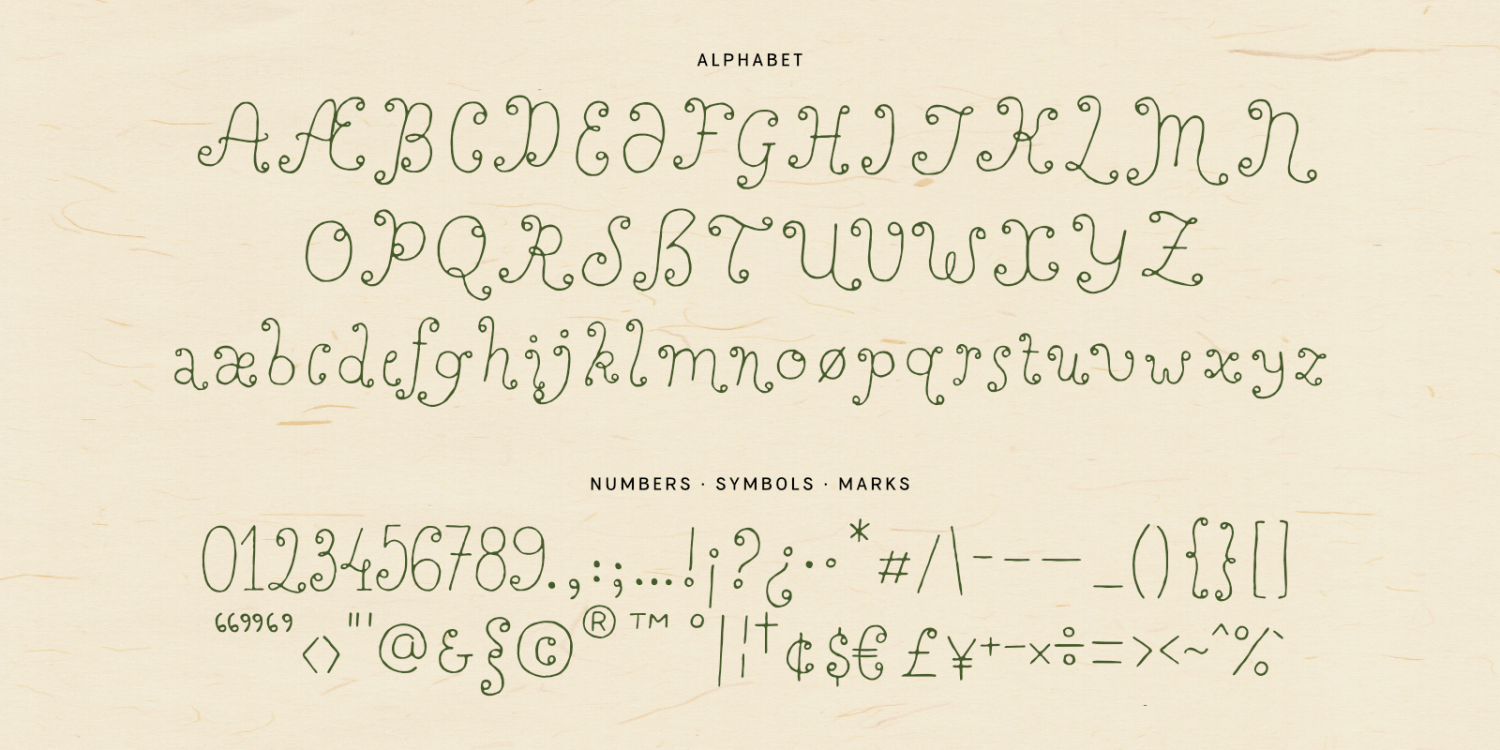 ALPHABET
AÆBCDE∂FGHIJKLMN
OPQRSẞTUVWXYZ
aæbcdefghijklmnoøpqrstuvwxyz
NUMBERS · SYMBOLS · MARKS
0123456789.,:;…!¡?¿·◦*#/\-–—_(){}[]
“”‘’‹›"'@&§©®™°|¦†¢$€£¥+−×÷=><~^%`